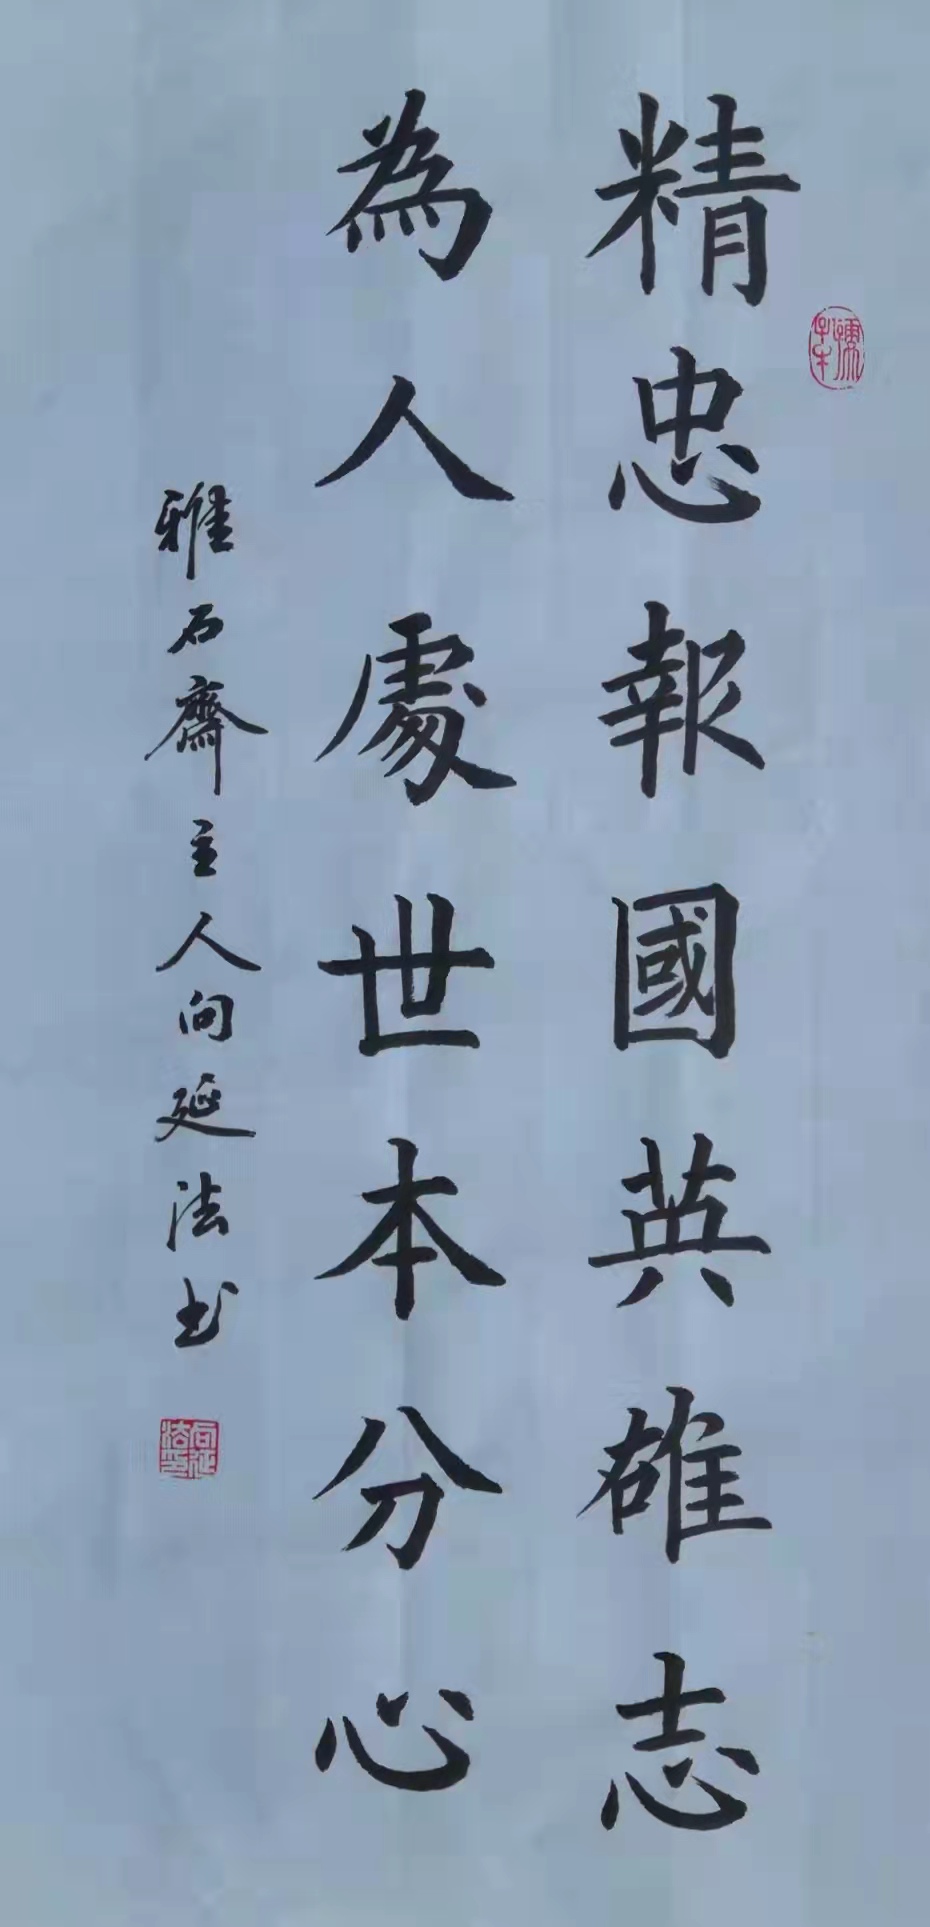 精忠報國英雄志
為人處世本分心
雅石齋主人向延法书
向延法印